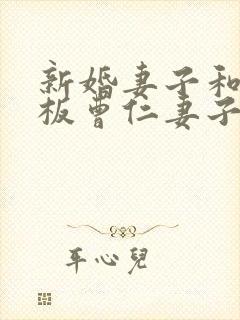 新婚妻子和
板曹仁妻子
耳心兒